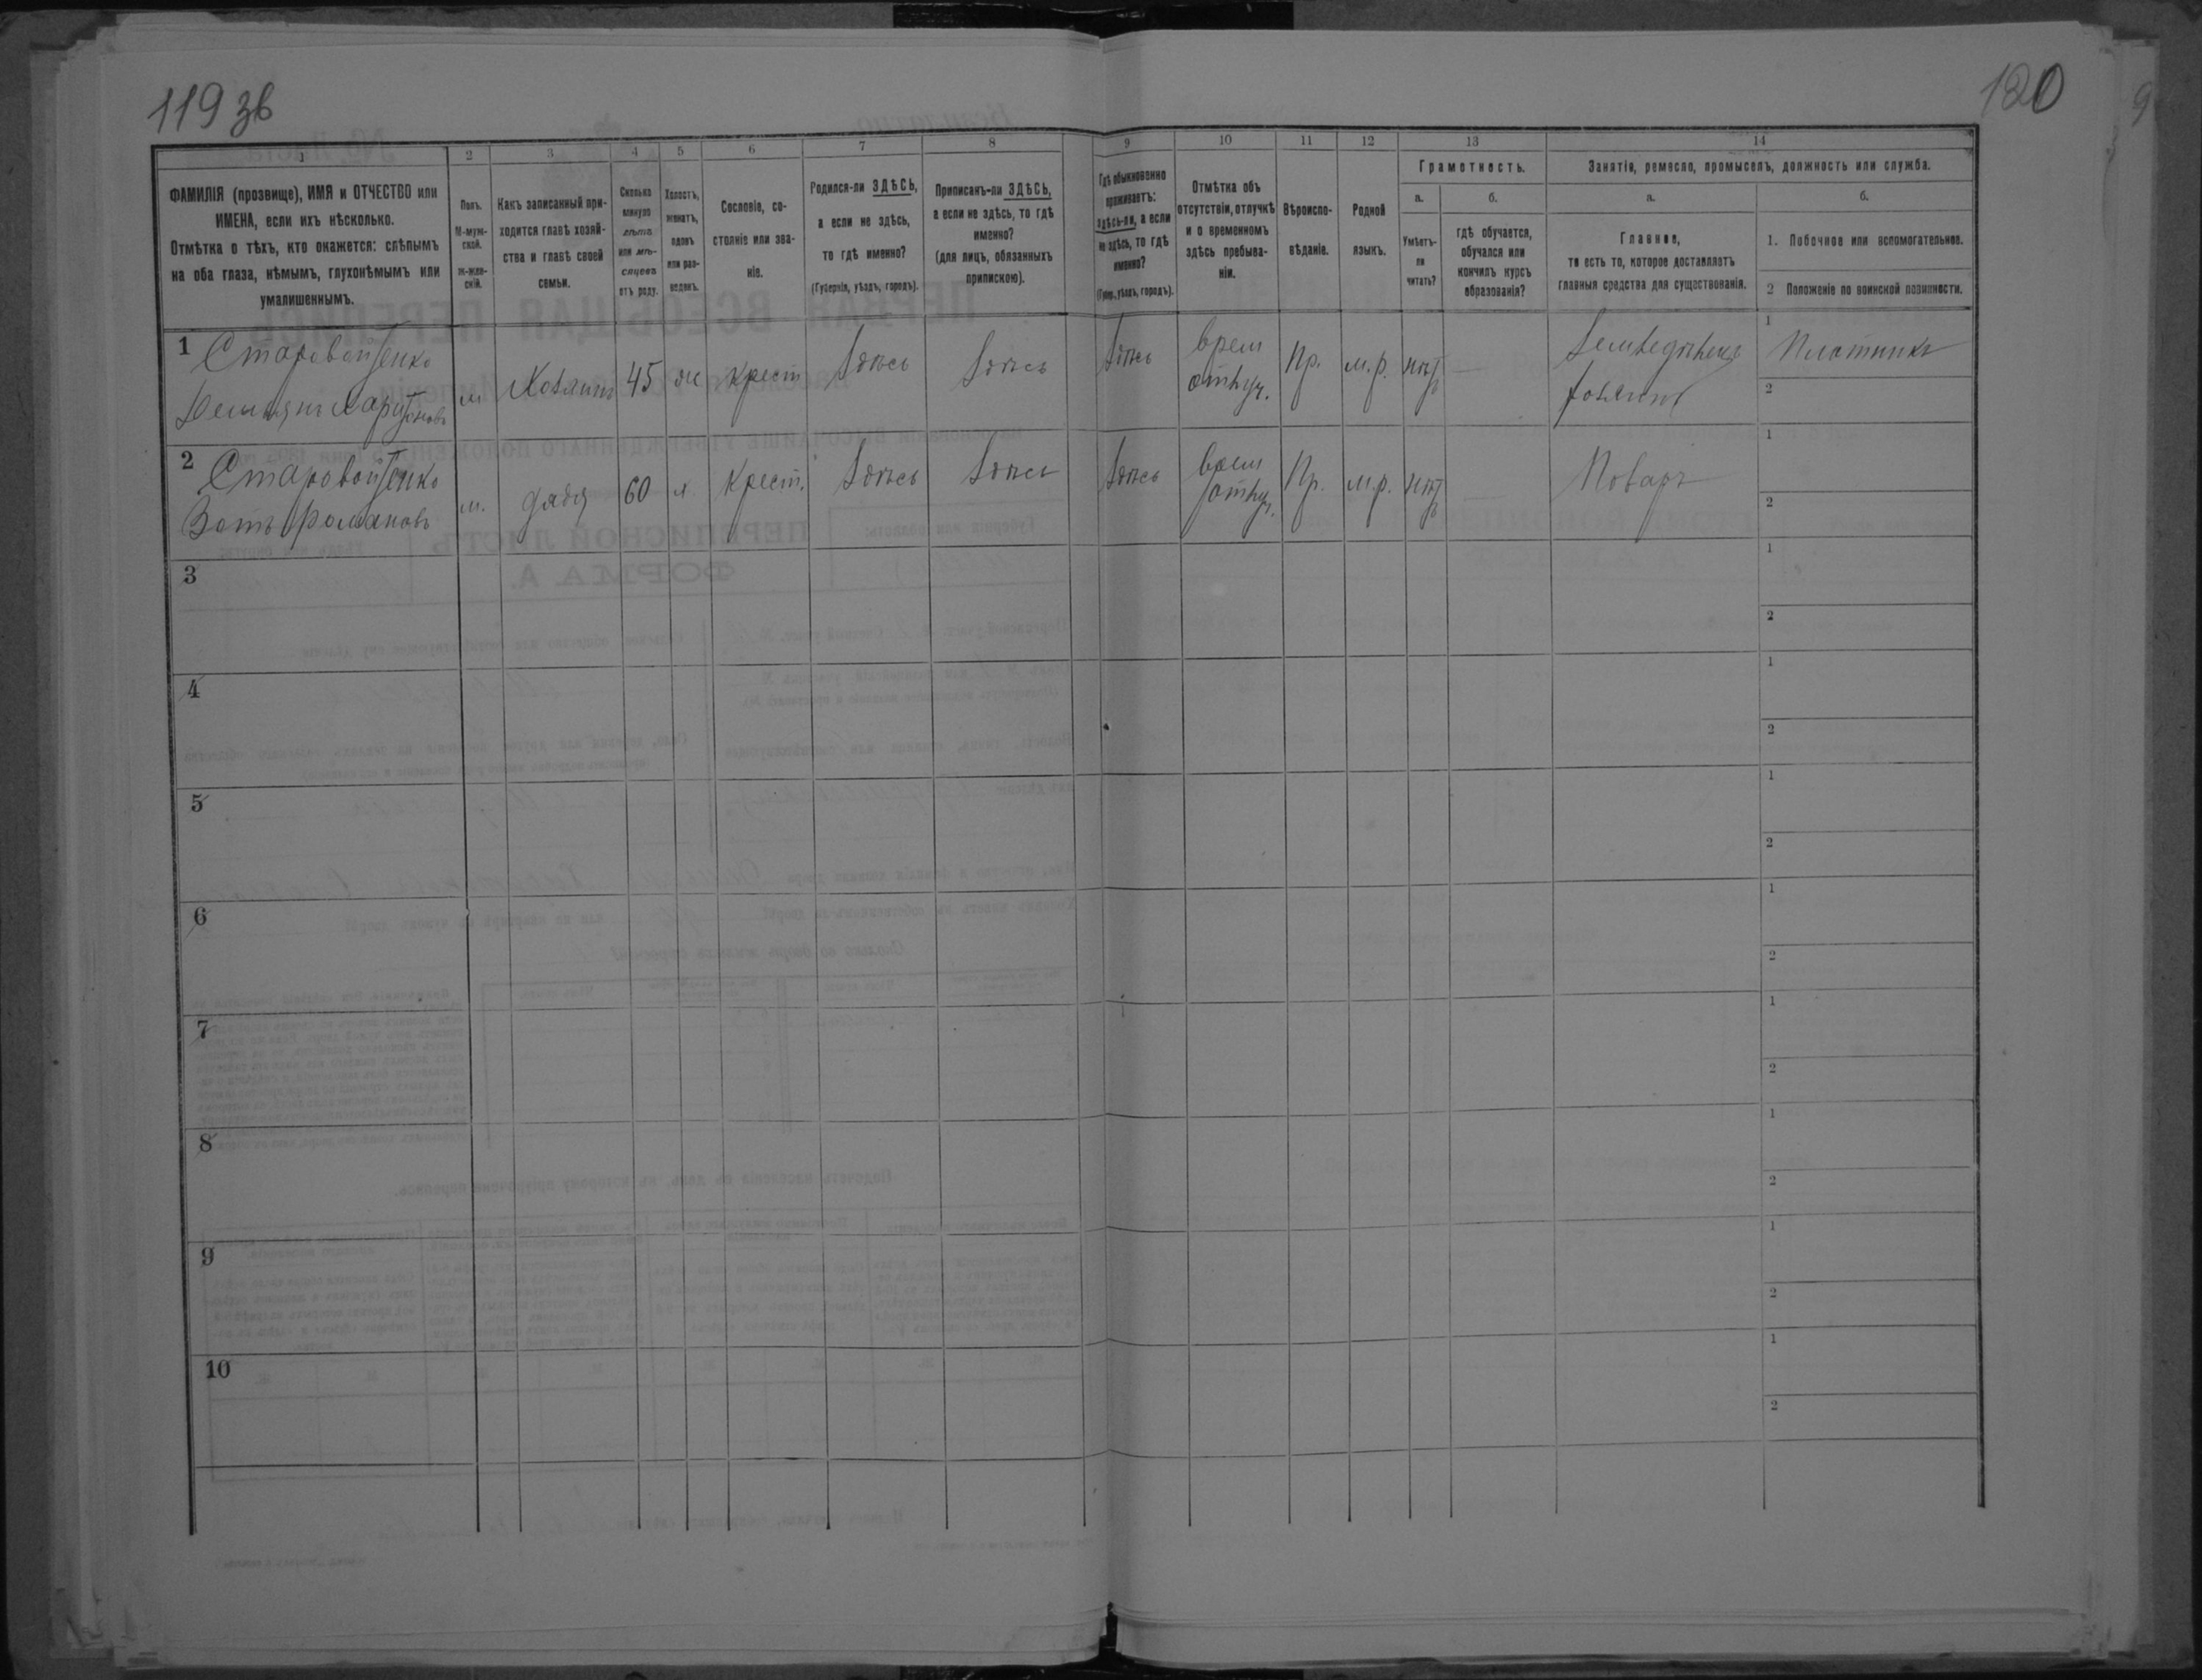 119 зв
120
1 2 3 4 5 6 7 8 9 10 11 12 13 14
ФАМИЛІЯ (прозвище), ИМЯ и ОТЧЕСТВО или
ИМЕНА, если ихъ нѣсколько.
Отмѣтка о тѣхъ, кто окажется: слѣпымъ
на оба глаза, нѣмымъ, глухонѣмымъ или
умалишеннымъ.
Полъ.
М-муж-
ской.
ж-жен-
скій.
Какъ записанный при-
ходится главѣ хозяй-
ства и главѣ своей
семьи.
Сколько
минуло
лѣтъ
или мѣ-
сяцевъ
отъ роду.
Холостъ,
женатъ,
вдовъ
или раз-
веденъ.
Сословіе, со-
стояніе или зва-
ніе.
Родился-ли ЗДѢСЬ,
а если не здѣсь,
то гдѣ именно?
(Губернія, уѣздъ, городъ).
Приписанъ-ли ЗДѢСЬ,
а если не здѣсь, то гдѣ
именно?
(для лицъ, обязанныхъ
припискою).
Гдѣ обыкновенно
проживаетъ:
здѣсь-ли, а если
не здѣсь, то гдѣ
именно?
(Губер., уѣздъ, городъ).
Отмѣтка объ
отсутствіи, отлучкѣ
и о временномъ
здѣсь пребыва-
ніи.
Вѣроиспо-
вѣданіе.
Родной
языкъ.
Грамотность.
а.
Умѣетъ-
ли
читать?
б.
гдѣ обучается,
обучался или
кончилъ курсъ
образованія?
Занятія, ремесло, промыселъ, должность или служба.
а.
Главное,
то есть то, которое доставляетъ
главныя средства для существованія.
б.
1. Побочное или вспомогательное.
2 Положеніе по воинской повинности.
1 Старовойтенко
Демьянъ Харитоновъ
м Хозяинъ 45 ж крест Здѣсь Здѣсь Здѣсь
врем
отлуч.
Пр. м.р. нѣтъ —
Земледѣлецъ
хозяинъ
1 Плотникъ
2
2 Старовойтенко
Романовъ
м. дядя 60 х крест. Здѣсь Здѣсь Здѣсь
врем
отлуч.
Пр. м.р. нѣтъ —
Поваръ
1
2
3
1
2
4
1
2
5
1
2
6
1
2
7
1
2
8
1
2
9
1
2
10
1
2